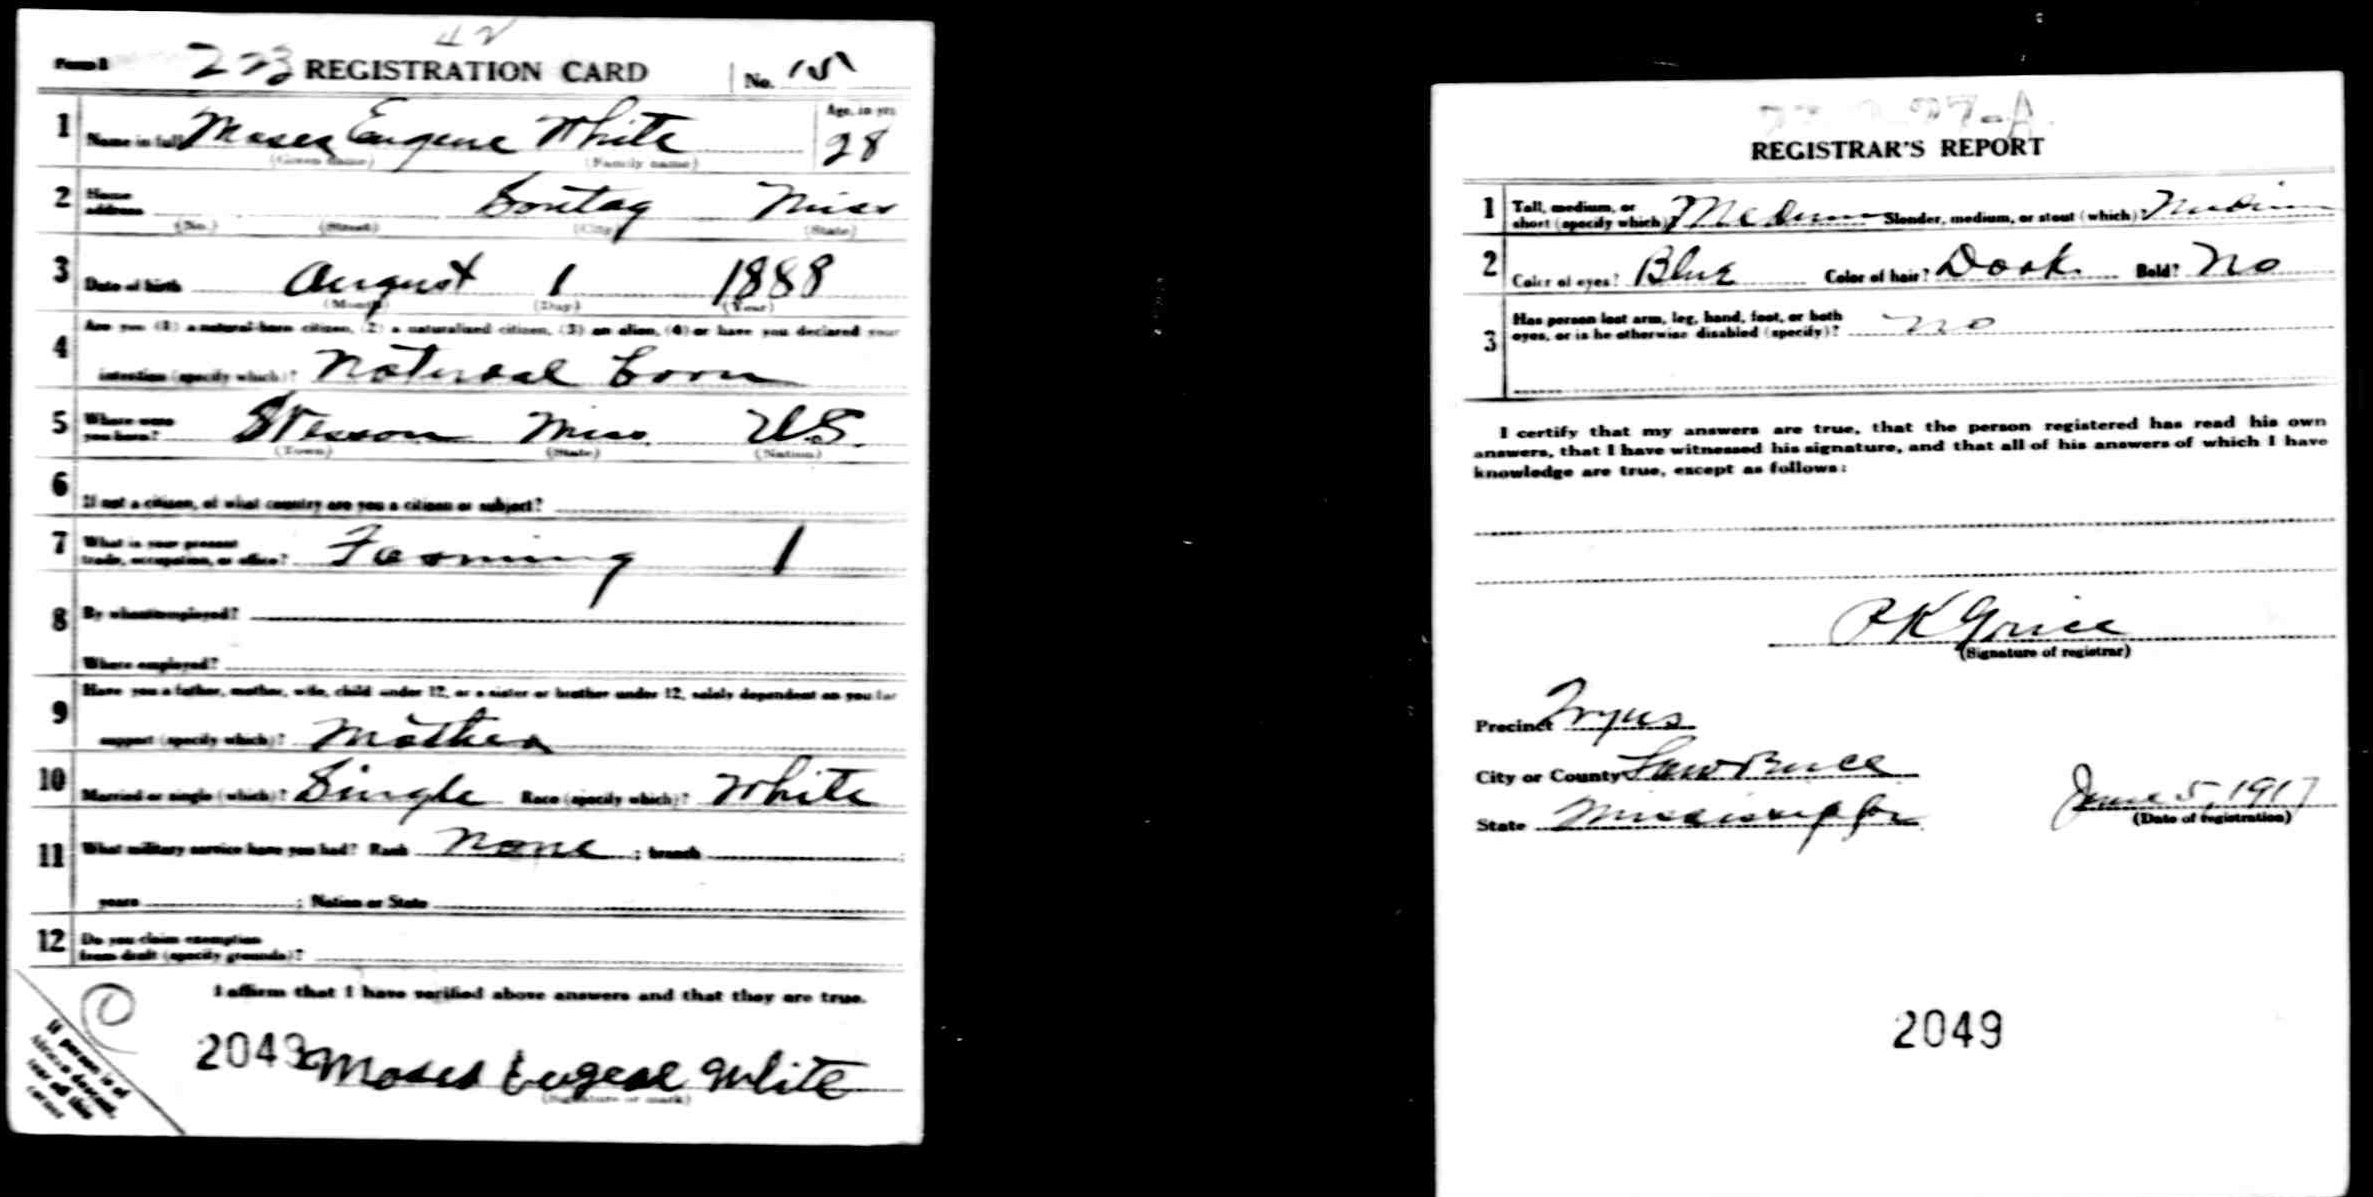 42
Form 1 223 REGISTRATION CARD No. 151
1 Name in full Moses Eugene White Age, in yrs. 28
(Given name) (Family name)
2 Home address Sontag Miss
(No.) (Street) (City) (State)
3 Date of birth August 1 1888
(Month) (Day) (Year)
4 Are you (1) a natural-born citizen, (2) a naturalized citizen, (3) an alien, (4) or have you declared your
intention (specify which)? Natural born
5 Where were you born? Miss U.S.
(Town) (State) (Nation)
6 If not a citizen, of what country are you a citizen or subject?
7 What is your present trade, occupation, or office? Farming 1
8 By whom employed?
Where employed?
9 Have you a father, mother, wife, child under 12, or a sister or brother under 12, solely dependent on you for
support (specify which)? Mother
10 Married or single (which)? Single Race (specify which)? White
11 What military service have you had? Rank None ; branch ;
years ; Nation or State
12 Do you claim exemption
from draft (specify grounds)?
I affirm that I have verified above answers and that they are true.
2049 Moses Eugene White
(Signature or mark)
If person is of
African descent,
tear off this
corner
REGISTRAR'S REPORT
1 Tall, medium, or
short (specify which)? Medium Slender, medium, or stout (which)? Medium
2 Color of eyes? Blue Color of hair? Dark Bald? No
3 Has person lost arm, leg, hand, foot, or both
eyes, or is he otherwise disabled (specify)? no
I certify that my answers are true, that the person registered has read his own
answers, that I have witnessed his signature, and that all of his answers of which I have
knowledge are true, except as follows:
Grice
(Signature of registrar)
Precinct Tryus
City or County Lawrence
State Mississippi June 5, 1917
(Date of registration)
2049